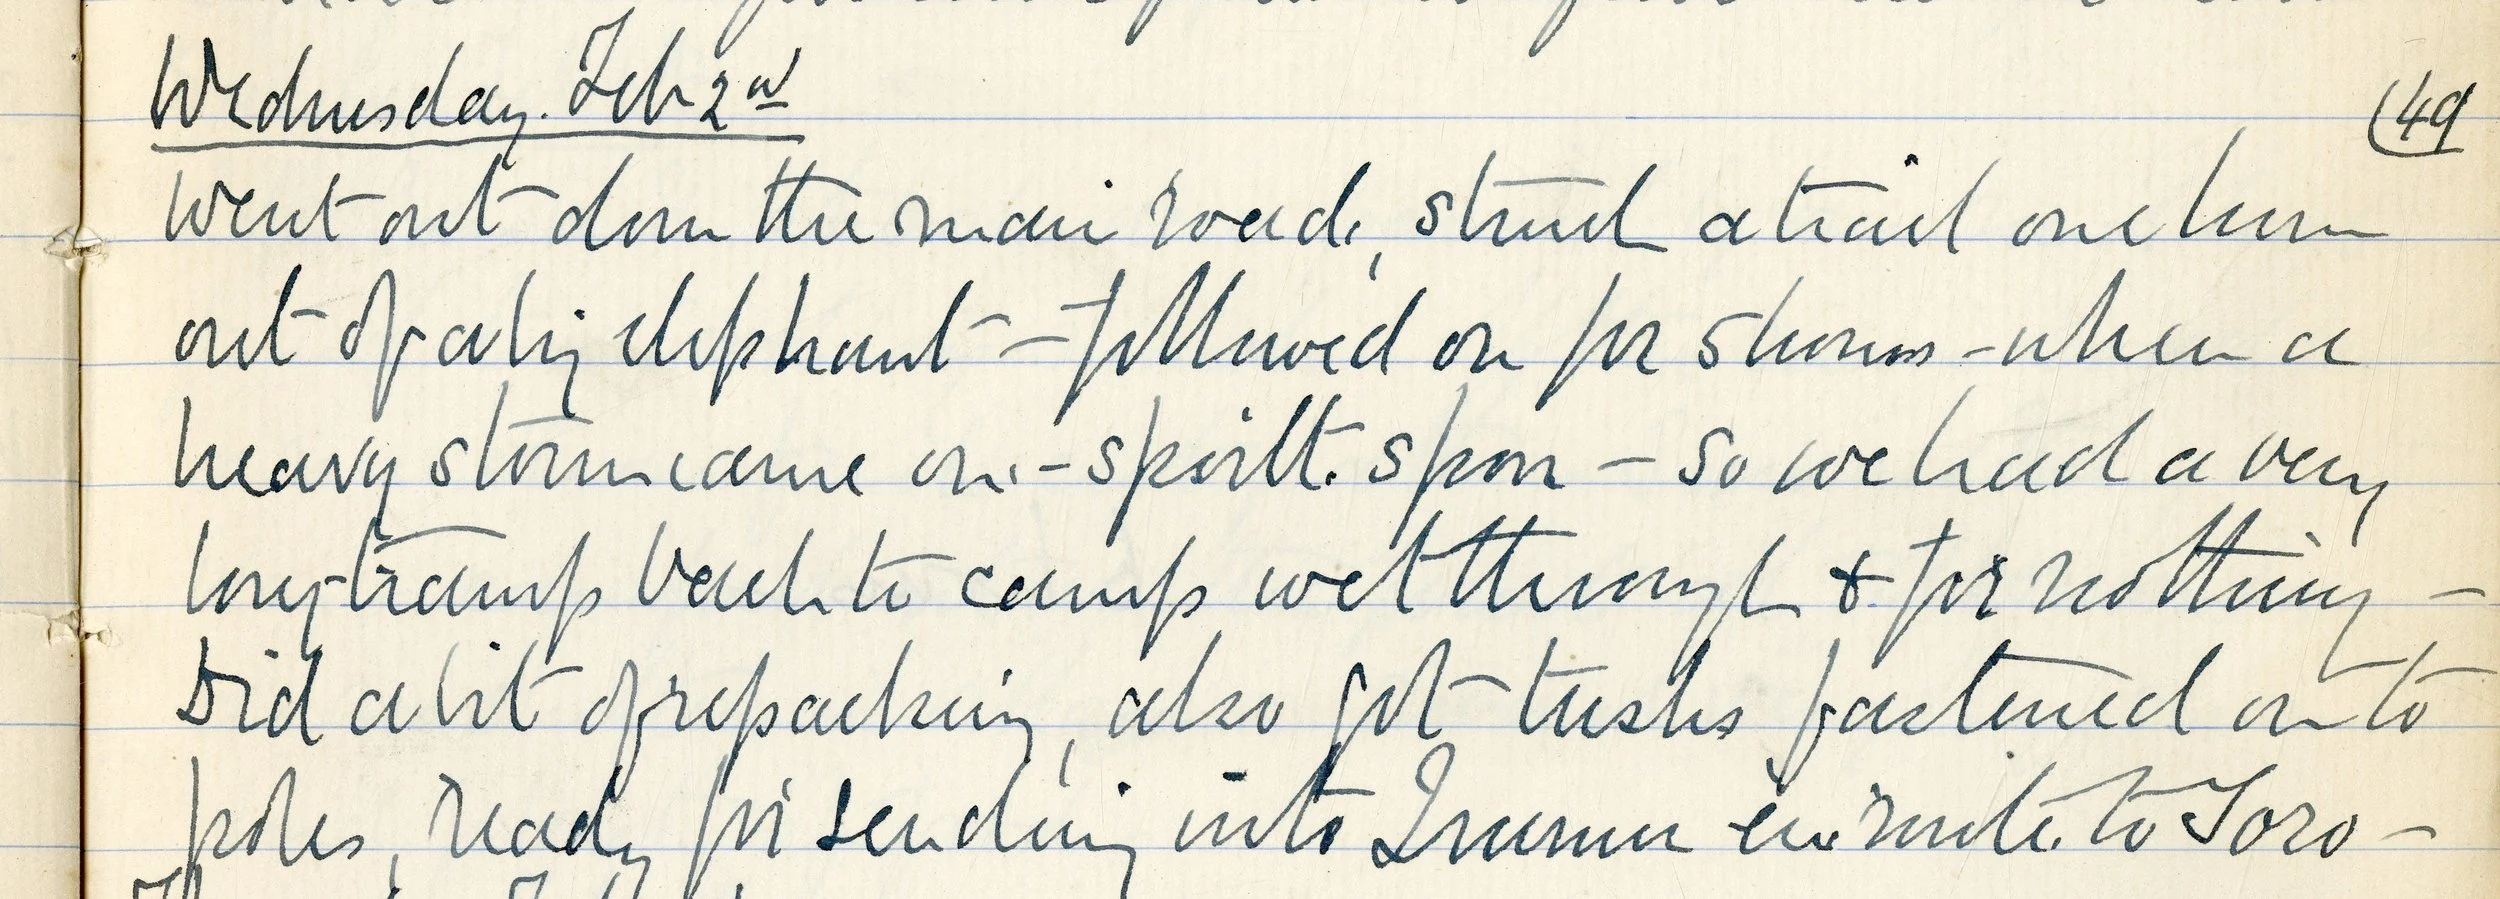 Wednesday. Feb 2nd
(49
went out down the main road, struck a trail one hour
out of a big elephant - followed on for 5 hours - when a
heavy storm came on. - spoilt. spoor - so we had a very
long tramp back to camp wet through & for nothing -
Did a bit of repacking, also got tusks fastened on to
poles, ready for sending into en route to Toro -